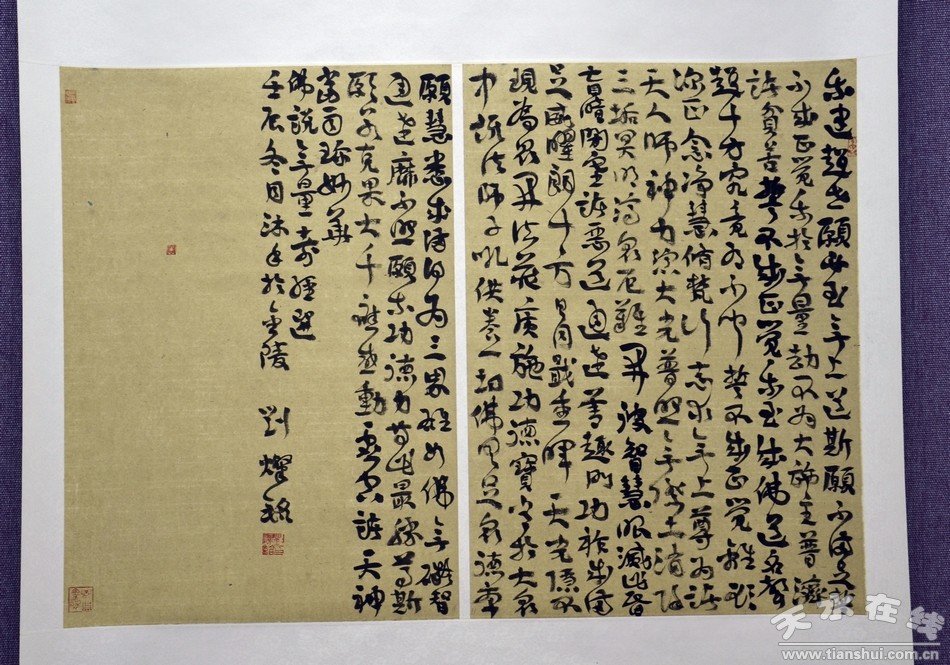 我建超世願必至無上道斯願不滿足誓
不成正覺我於無量劫不為大施主普濟
諸貧苦誓不成正覺我至成佛道名聲
超十方究竟有不聞誓不成正覺離欲
深正念淨慧脩梵行志求無上尊為諸
天人師神力演大光普照無際土消除
三垢冥明濟眾厄難開彼智慧眼滅此昏
盲暗閉塞諸惡道通達善趣門功祚成滿
足威曜朗十方日月戢重暉天光隱不
現為眾開法藏廣施功德寶常於大眾
中說法師子吼供養一切佛具足眾德本
願慧悉成滿得為三界雄如佛無礙智
通達靡不照願我功德力等此最勝尊斯
願若克果大千應感動虛空諸天神
當雨珍妙華
佛說無量壽經選
壬辰冬月沐手於金陵 劉燦銘
天水在线
www.tianshui.com.cn